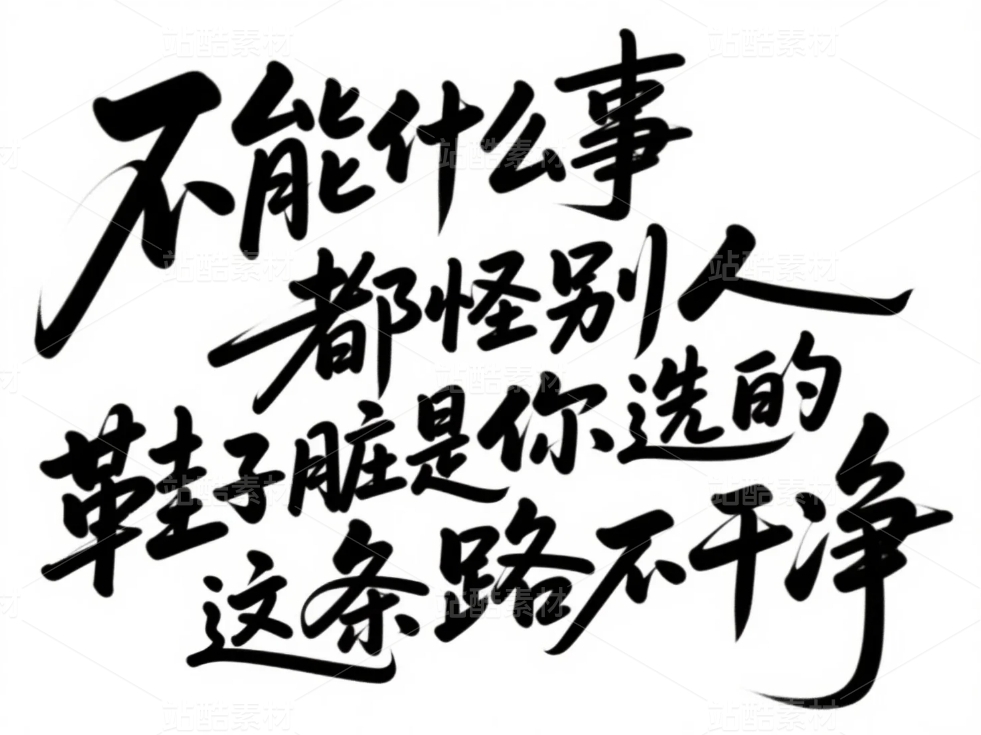 不能什么事
都怪别人
鞋子脏是你选的
这条路不干净
站酷素材